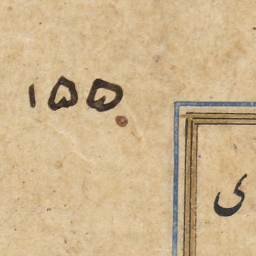 ۱۵۵
ی